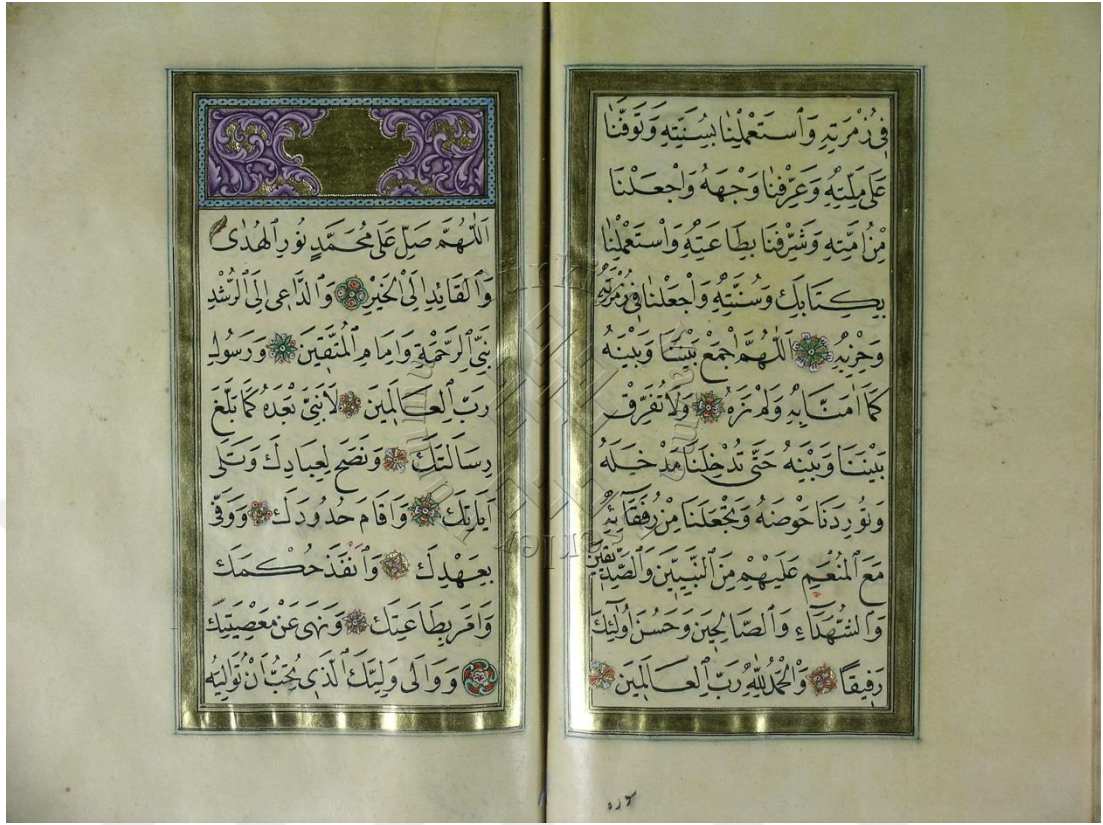 فِي زُمْرَتِهِ وَاسْتَعْمِلْنَا بِسُنَّتِهِ وَتَوَفَّنَا
عَلَى مِلَّتِهِ وَعَرِّفْنَا وَجْهَهُ وَاجْعَلْنَا
مِنْ اُمَّتِهِ وَشَرِّفْنَا بِطَاعَتِهِ وَاسْتَعْمِلْنَا
بِكِتَابِكَ وَسُنَّتِهِ وَاجْعَلْنَا فِي زُمْرَتِهِ
وَحِزْبِهِ اَللّٰهُمَّ اجْمَعْ بَيْنَنَا وَبَيْنَهُ
كَمَا اٰمَنَّا بِهِ وَلَمْ نَرَهُ وَلَا تُفَرِّقْ
بَيْنَنَا وَبَيْنَهُ حَتّٰى تُدْخِلَنَا مَدْخَلَهُ
وَتُورِدَنَا حَوْضَهُ وَتَجْعَلَنَا مِنْ رُفَقَآئِهِ
مَعَ الْمُنْعَمِ عَلَيْهِمْ مِنَ النَّبِيّٖنَ وَالصِّدّٖيقٖينَ
وَالشُّهَدَآءِ وَالصَّالِحٖينَ وَحَسُنَ اُولٰٓئِكَ
رَفٖيقًا وَالْحَمْدُ لِلّٰهِ رَبِّ الْعَالَمٖينَ
اَللّٰهُمَّ صَلِّ عَلٰى مُحَمَّدٍ نُورِ الْهُدٰى
وَالْقَائِدِ اِلَى الْخَيْرِ وَالدَّاعٖى اِلَى الرُّشْدِ
نَبِيِّ الرَّحْمَةِ وَاِمَامِ الْمُتَّقٖينَ وَرَسُولِ
رَبِّ الْعَالَمٖينَ لَا نَبِيَّ بَعْدَهُ كَمَا بَلَّغَ
رِسَالَتَكَ وَنَصَحَ لِعِبَادِكَ وَتَلٰى
اٰيَاتِكَ وَاَقَامَ حُدُودَكَ وَوَفّٰى
بِعَهْدِكَ وَاَنْفَذَ حُكْمَكَ
وَاَمَرَ بِطَاعَتِكَ وَنَهٰى عَنْ مَعْصِيَتِكَ
وَوَالٰى وَلِيَّكَ الَّذٖى تُحِبُّ اَنْ تُوَالِيَهُ